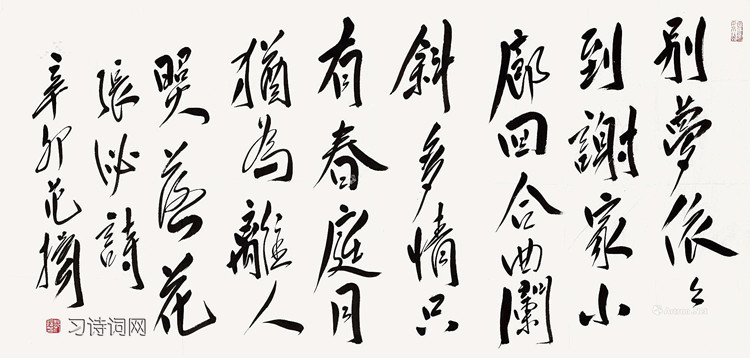 别夢依〻
到謝家小
廊回合曲闌
斜多情只
有春庭月
猶為離人
照落花
張泌詩
辛卯范
习诗词网